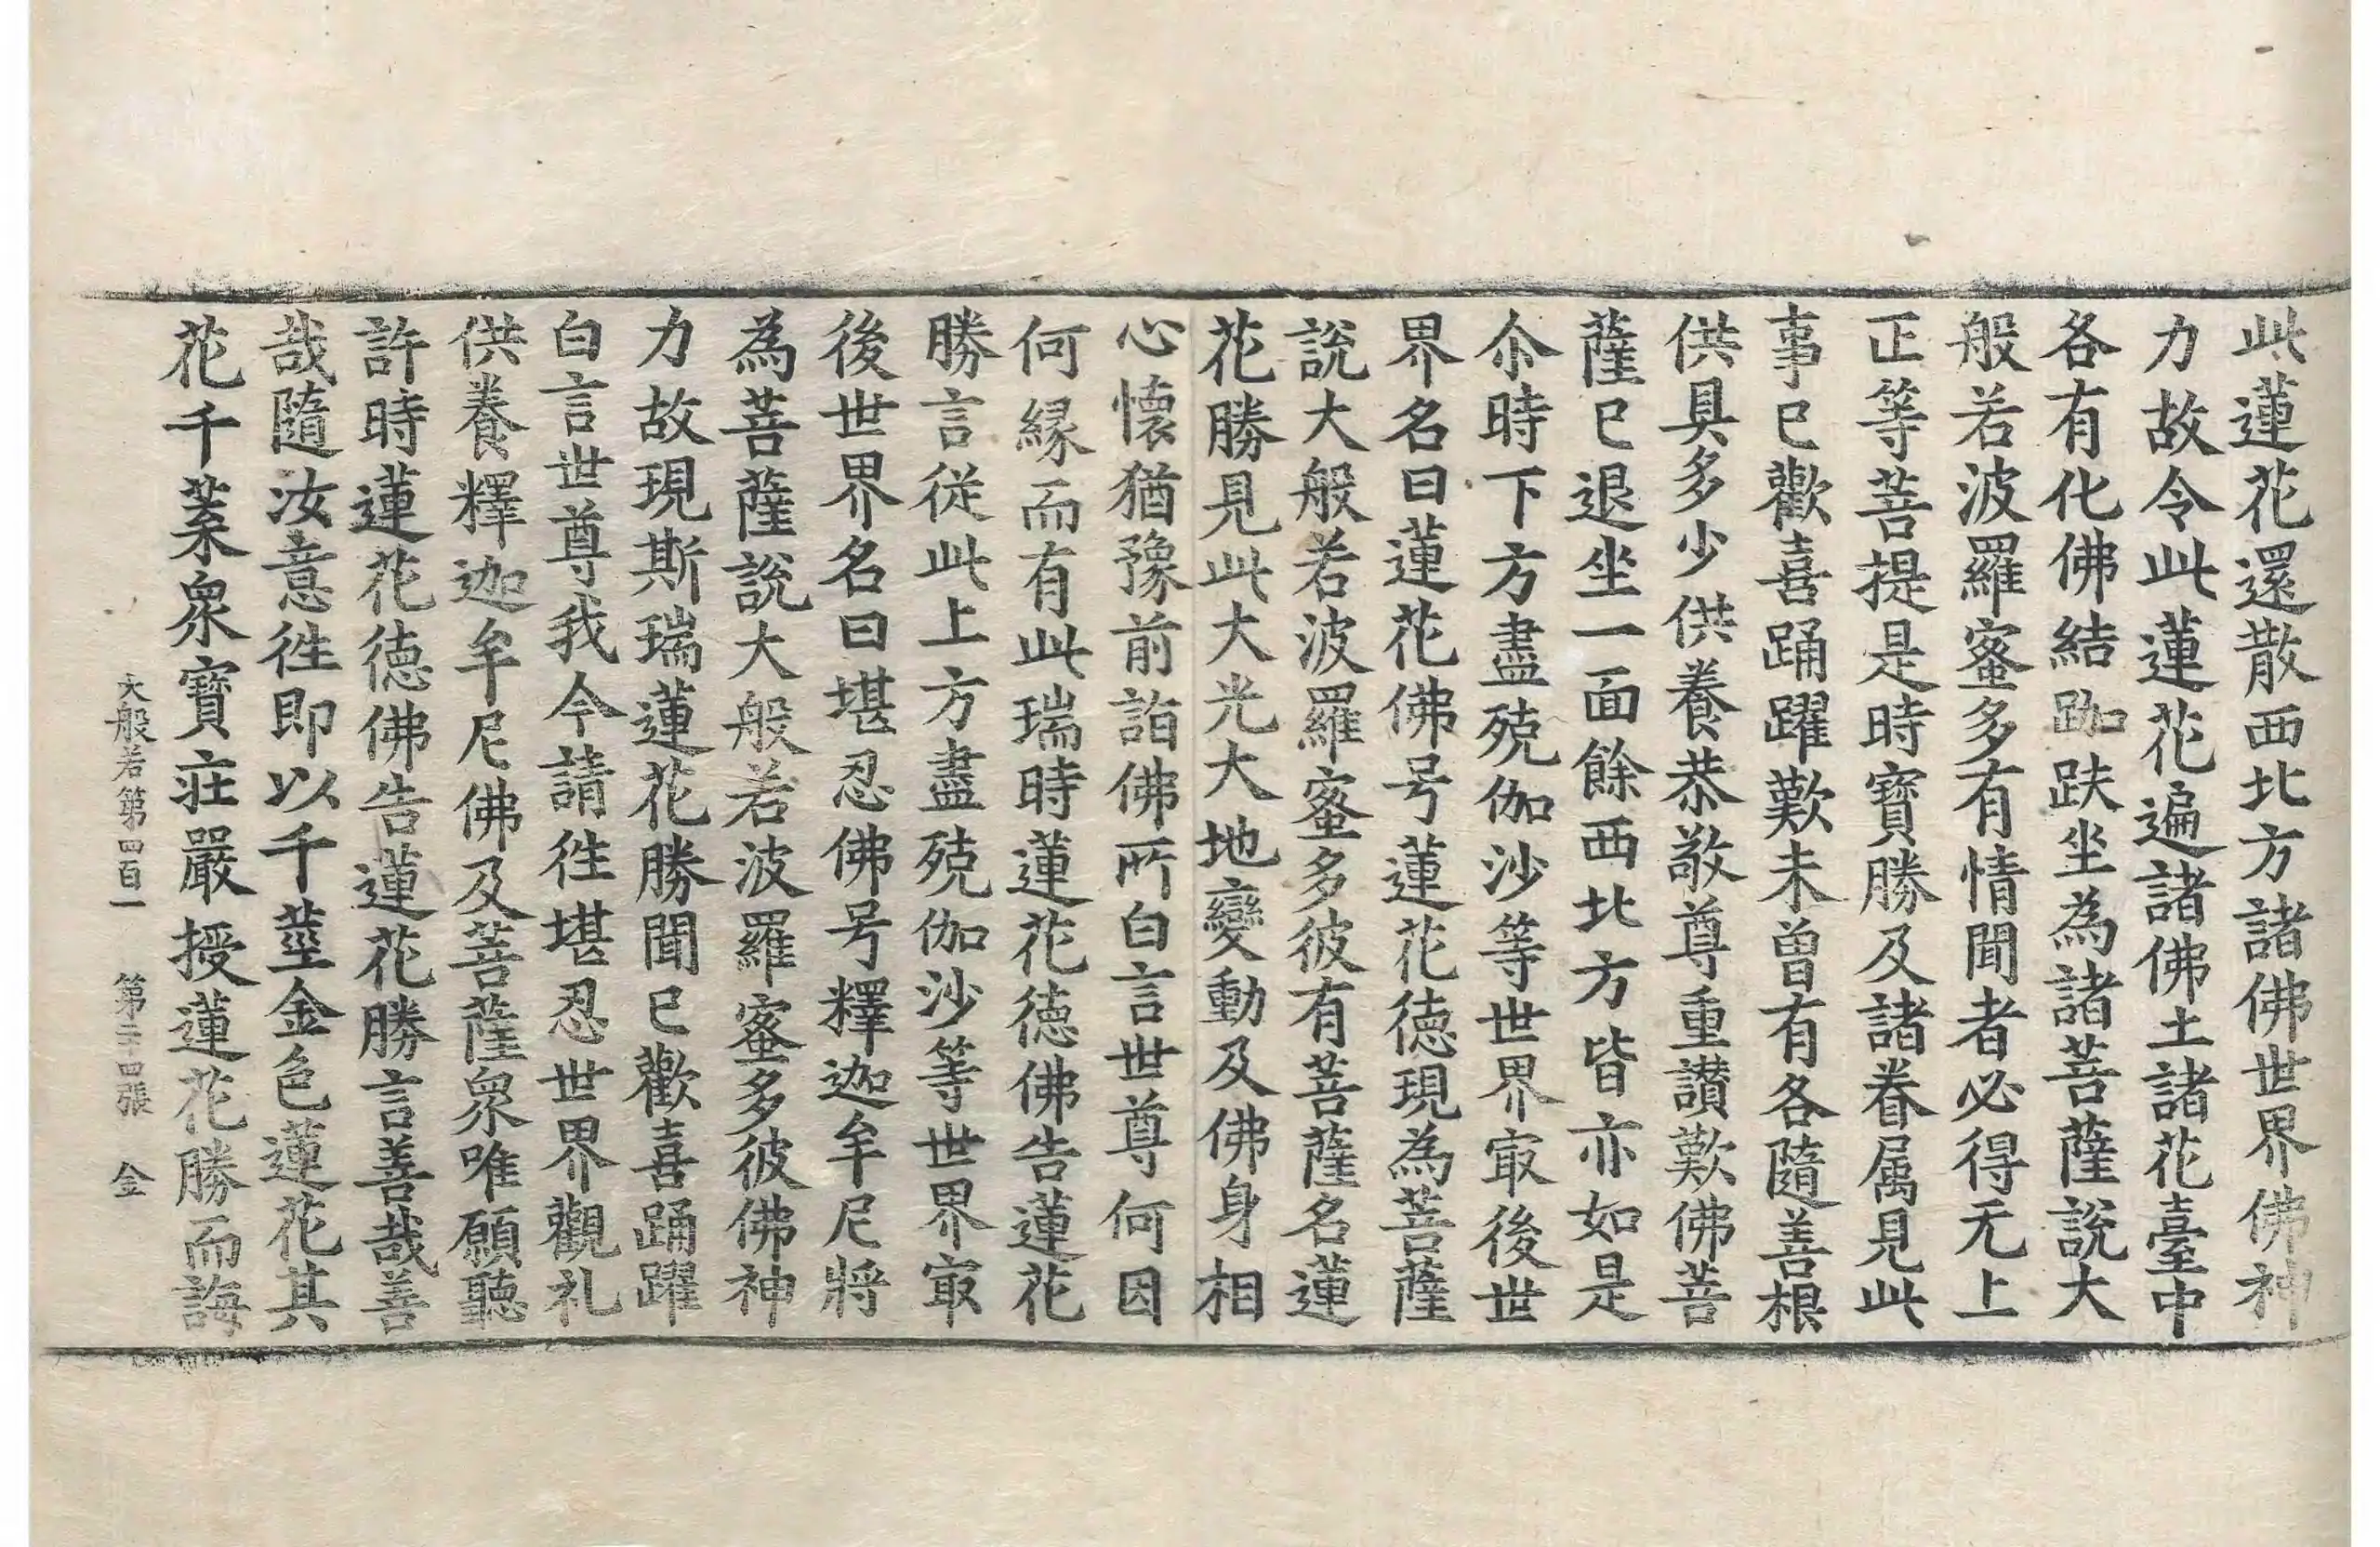 此蓮花還散西北方諸佛世界佛神
力故令此蓮花遍諸佛土諸花臺中
各有化佛結跏趺坐為諸菩薩說大
般若波羅蜜多有情聞者必得无上
正等菩提是時寶勝及諸眷属見此
事已歡喜踊躍歎未曾有各隨善根
供具多少供養恭敬尊重讚歎佛菩
薩已退坐一面餘西北方皆亦如是
尒時下方盡殑伽沙等世界㝡後世
界名曰蓮花佛号蓮花德現為菩薩
說大般若波羅蜜多彼有菩薩名蓮
花勝見此大光大地變動及佛身相
心懷猶豫前詣佛所白言世尊何因
何緣而有此瑞時蓮花德佛告蓮花
勝言從此上方盡殑伽沙等世界㝡
後世界名曰堪忍佛号釋迦牟尼將
為菩薩說大般若波羅蜜多彼佛神
力故現斯瑞蓮花勝聞已歡喜踊躍
白言世尊我今請徃堪忍世界觀礼
供養釋迦牟尼佛及菩薩衆唯願聽
許時蓮花德佛告蓮花勝言善哉善
哉隨汝意徃即以千莖金色蓮花其
花千葉衆寶莊嚴授蓮花勝而誨
大般若第四百一　第二十四張　金